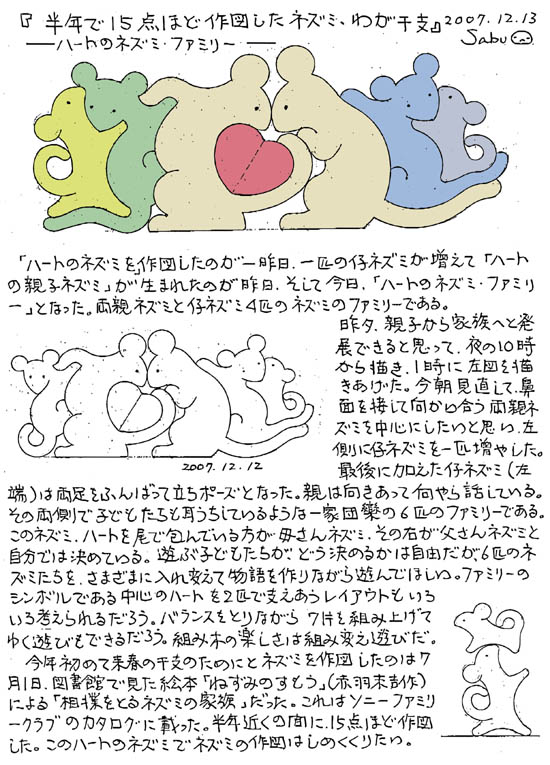 『半年で15点ほど作図したネズミ、わが干支』2007.12.13
―ハートのネズミ・ファミリー―
Sabu
「ハートのネズミを」作図したのが一昨日、一匹の仔ネズミが増えて「ハート
の親子ネズミ」が生まれたのが昨日、そして今日、「ハートのネズミ・ファミリ
ー」となった。両親ネズミと仔ネズミ4匹のネズミのファミリーである。
昨夕、親子から家族へと発
展できると思って、夜の10時
から描き、1時に左図を描
きあげた。今朝見直して、鼻
面を接して向かい合う両親ネ
ズミを中心にしたいと思い、左
側に仔ネズミを一匹増やした。
最後に加えた仔ネズミ(左
2007.12.12
端)は両足をふんばって立ちポーズとなった。親は向きあって何やら話している。
その両側で子どもたちも耳うちしているような一家団欒の6匹のファミリーである。
このネズミ、ハートを尾で包んでいる方が母さんネズミ、その右が父さんネズミと
自分では決めている。遊ぶ子どもたちがどう決めるかは自由だが、6匹のネ
ズミたちを、さまざまに入れ変えて物語を作りながら遊んでほしい。ファミリーの
シンボルである中心のハートを2匹で支えあうレイアウトもいろ
いろ考えられるだろう。バランスをとりながら7片を組み上げて
ゆく遊びもできるだろう。組み木の楽しさは組み変え遊びだ。
今年初めて来春の干支のためにとネズミを作図したのは7
月1日、図書館で見た絵本「ねずみのすもう」(赤羽末吉作)
による「相撲をとるネズミの家族」だった。これはソニーファミリ
ークラブのカタログに載った。半年近くの間に、15点ほど作図
した。このハートのネズミでネズミの作図はしめくくりたい。